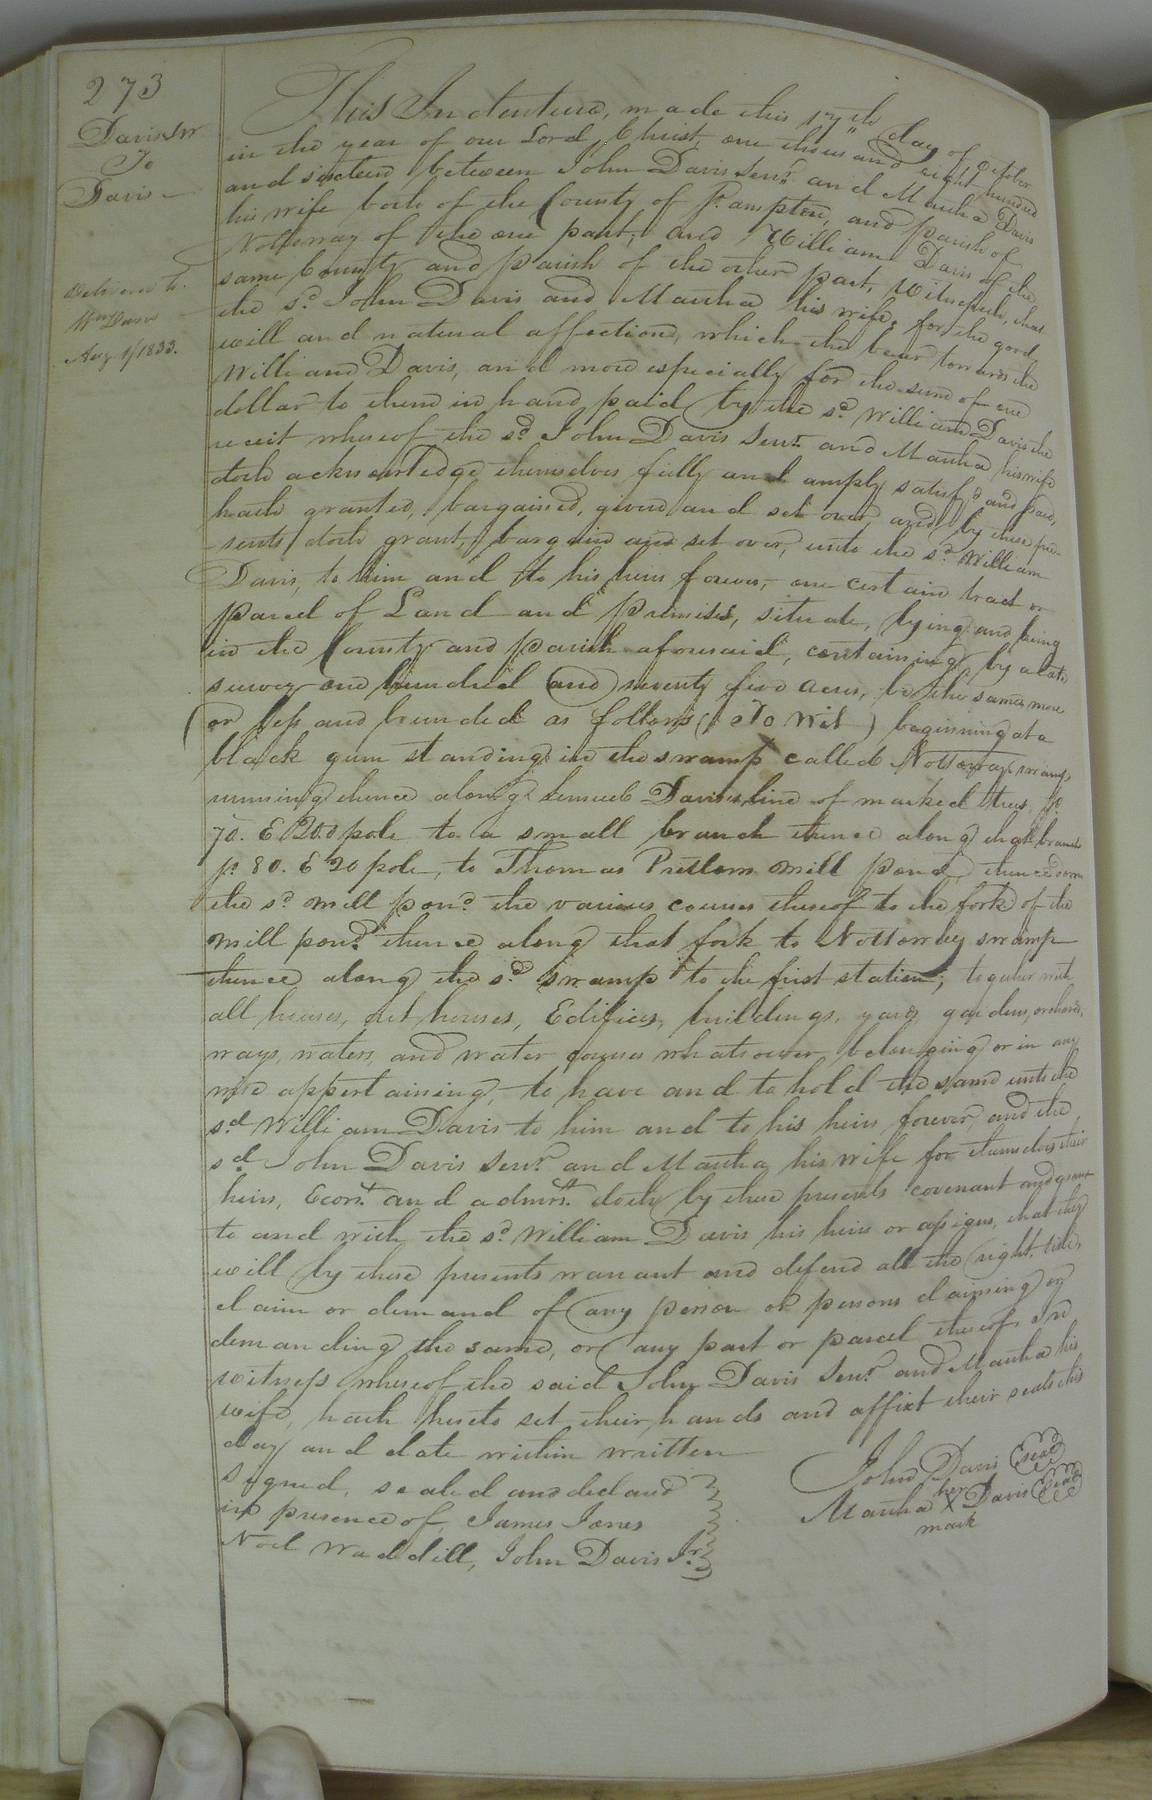 273
Davis Snr
To
Davis
Delivered to
Wm Davis
Aug 1/1833.
This Indenture, made this 17th day of October
in the year of our Lord Christ, one thousand eight hundred
and sixteen, between John Davis Senr and Martha Davis
his wife both of the County of S.ampton, and parish of
Nottoway of the one part, and William Davis of the
same County and parish of the other part, Witnesseth, that
the sd John Davis and Martha his wife, for the good
will and natural affection, which the bear towards the
William Davis, and more especially for the sum of one
dollar to them in hand paid by the sd William Davis the
receit whereof the sd John Davis Senr and Martha his wife
doth acknowledge themselves fully and amply satisfd and paid,
hath granted, bargained, given and set over, and by these pre-
-sents doth grant, bargain and set over, unto the sd William
Davis, to him and to his heirs forever, one certain tract or
parcel of Land and premises, situate, lying and being
in the County and parish aforesaid, containing by a late
survey one hundred and seventy five acres, be the same more
or less and bounded as follows (To Wit) beginning at a
black gum standing in the swamp called Nottoway swamp,
running thence along Lemuel Davis's line of marked trees,
70. E 200 pole to a small branch thence along that branch
80. E 20 pole, to Thomas Pretlow mill pond, thence down
the sd mill pond the various courses thereof to the fork of the
mill pond thence along that fork to Nottoway swamp
thence along the sd swamp to the first station; together with
all houses, out houses, Edifices, buildings, yards, gardens, orchards,
ways, waters, and water courses whatsoever, belonging or in any
wise appertaining, to have and to hold the same unto the
sd William Davis to him and to his heirs forever, and the
sd John Davis Senr and Martha his wife for themselves their
heirs, Ecors. and admrs. doth by these presents covenant and grant
to and with the sd William Davis his heirs or assigns, that they
will by these presents warrant and defend all the right, title,
claim or demand of any person or persons claiming or
demanding the same, or any part or parcel thereof. In
witness whereof the said John Davis Senr and Martha his
wife, hath hereto set their hands and affixt their seals this
day and date within written
Signed, sealed and deld and
in presence of, James Jones
Noel Waddill, John Davis Jr.
John Davis Seal
her
Martha X Davis Seal
mark